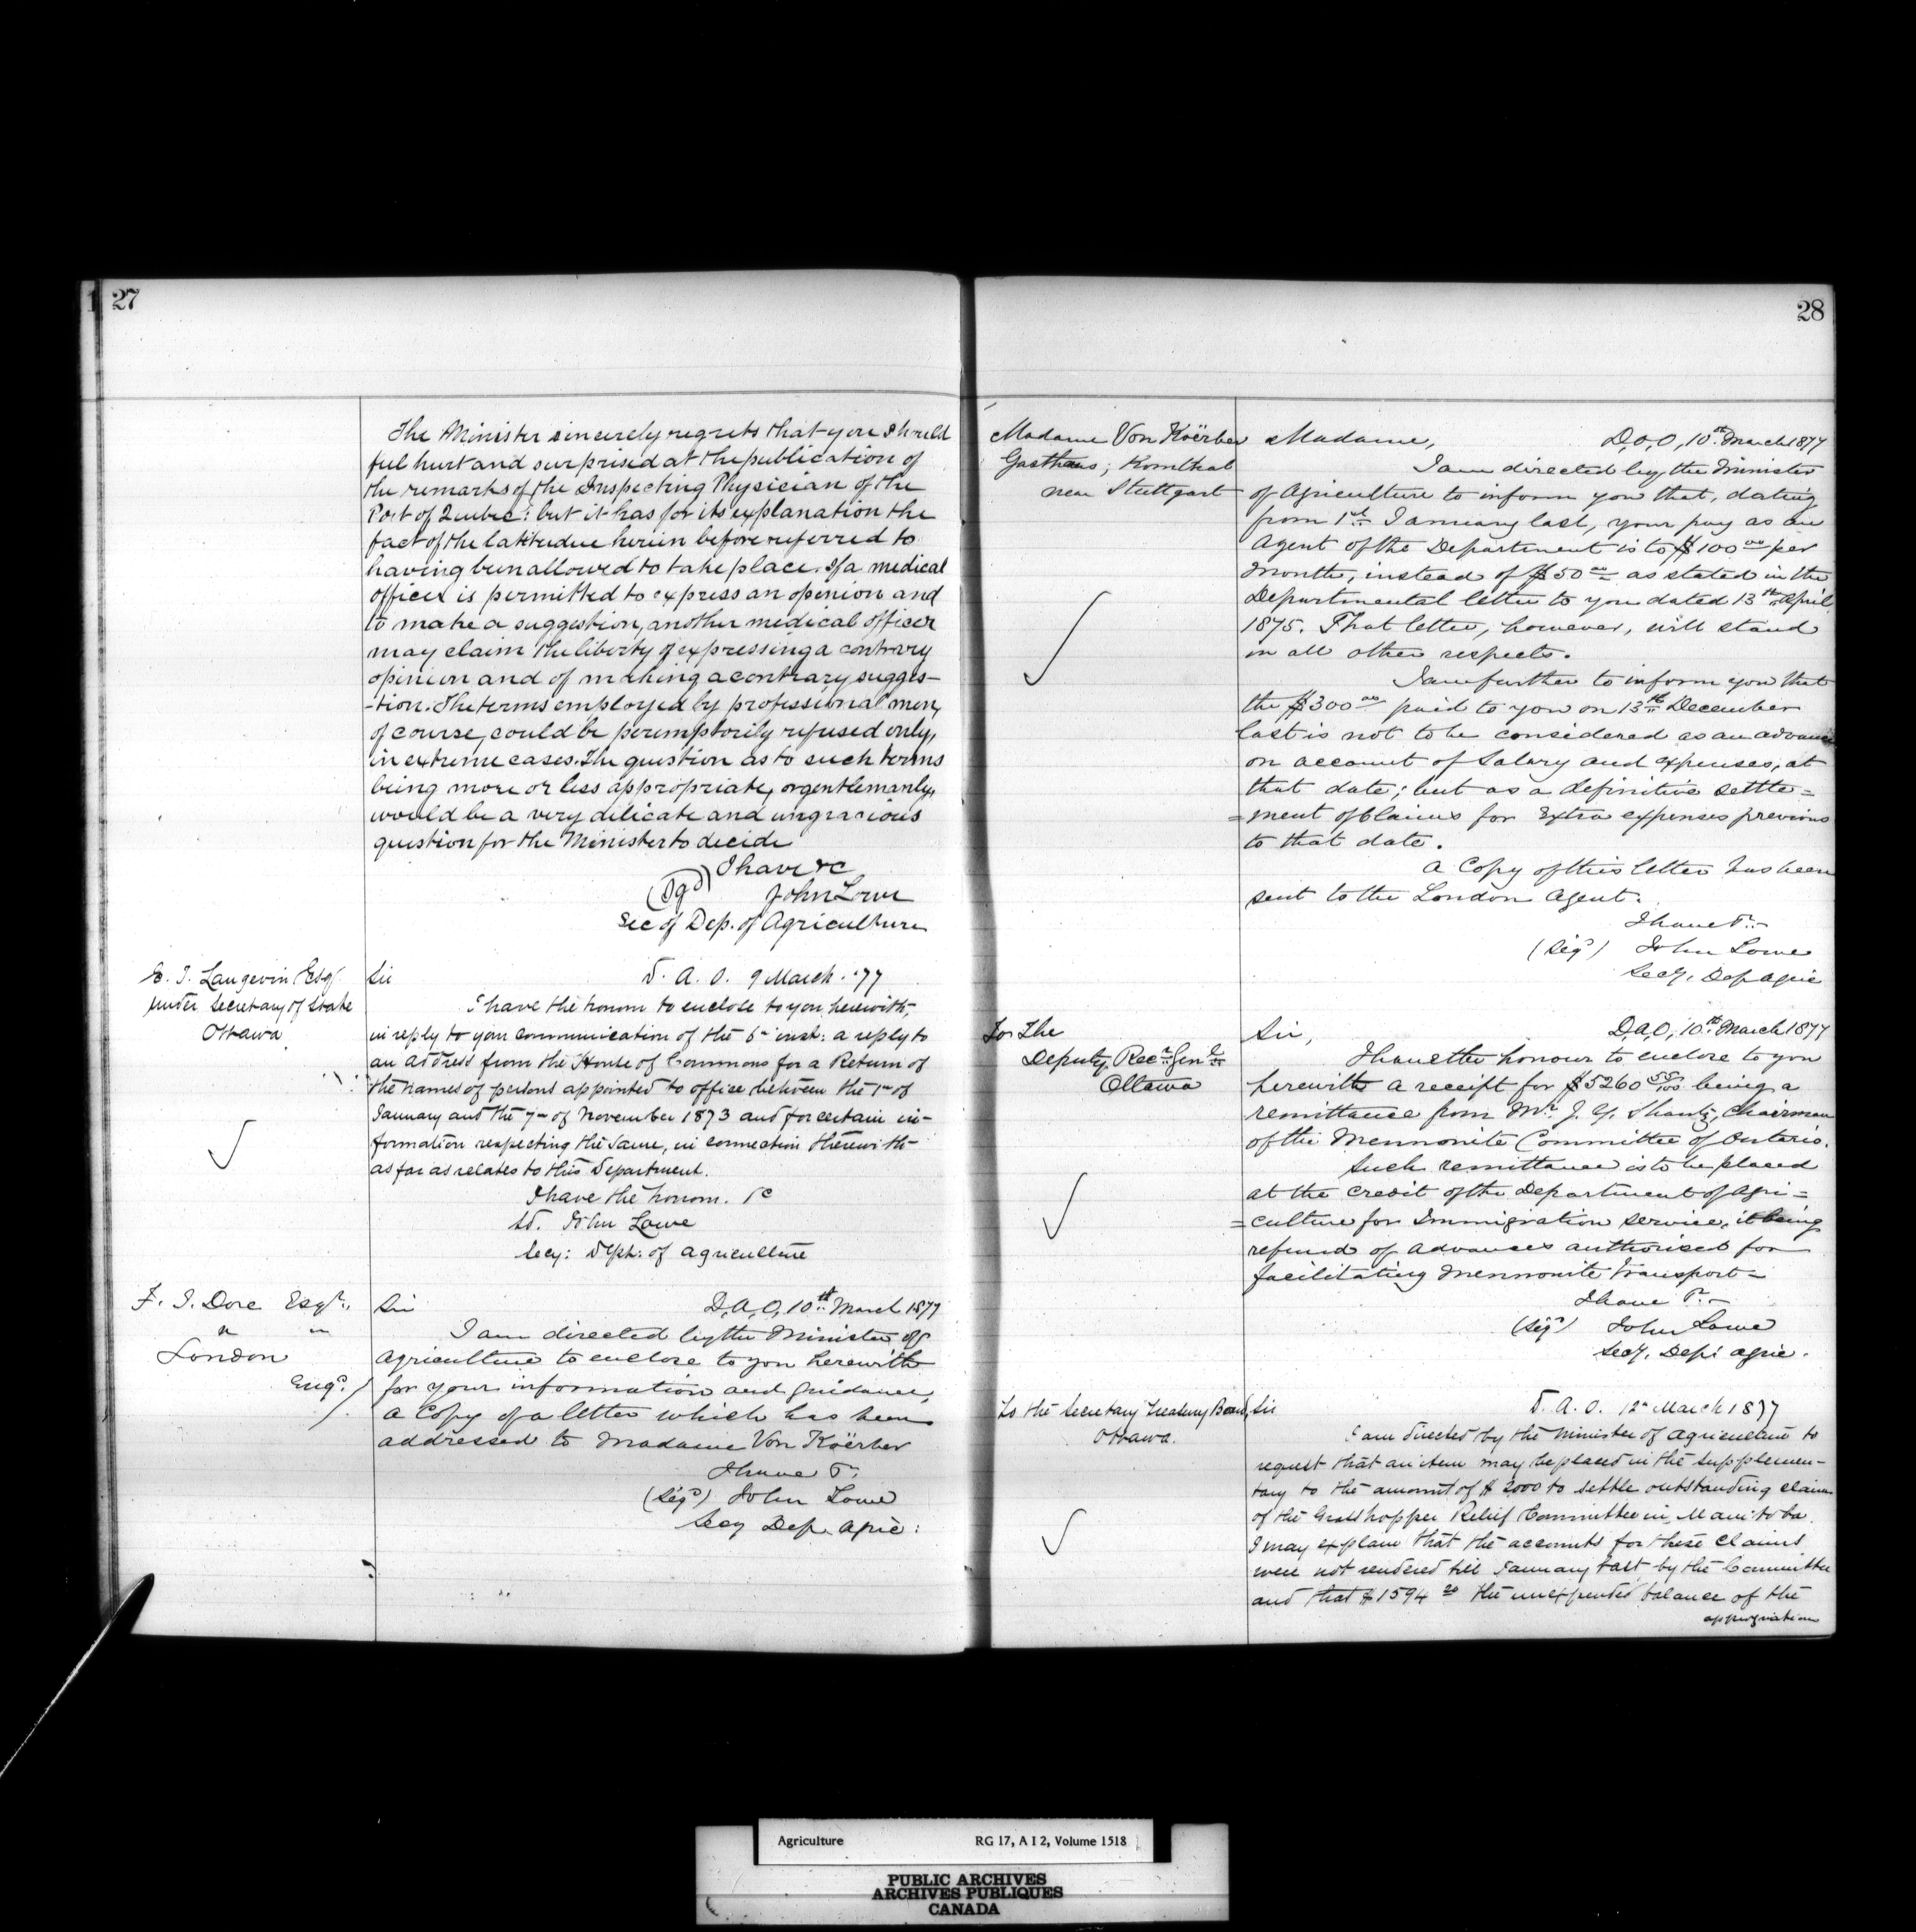 27
The Minister sincerely regrets that you should
feel hurt and surprised at the publication of
the remarks of the Inspecting Physician of the
Port of Quebec: but it has for its explanation the
fact of the latitudue herein before referred to
having been allowed to take place. If a medical
officer is permitted to express an opinion and
to make a suggestion, another medical officer
may claim the liberty of expressing a contrary
opinion and of making a contrary sugges-
-tion. The terms employed by professional men,
of course, could be peremptorily refused only,
in extreme cases. The question as to such terms
being more or less appropriate, or gentlemanly,
would be a very delicate and ungracious
question for the Minister to decide
I have &c
(Sgd) John Lowe
Sec of Dep. of Agriculture
E. J. Langevin Esq
Under Secretary of State
Ottawa
Sir D. A. O. 9 March. '77
I have the honour to enclose to you herewith,
in reply to your communication of the 6th inst: a reply to
an Address from the House of Commons for a Return of
the names of persons appointed to office between the 1st of
January and the 7th of November 1873 and for certain in-
formation respecting the same, in connection therewith
as far as relates to this Department.
I have the honour. &c
Sd. John Lowe
Secy: Dept: of Agriculture
F. J. Dore Esqr.,
" "
London
Engd.
Sir D.A.O, 10th March 1877
I am directed by the Minister of
Agriculture to enclose to you herewith
for your information and guidance,
a Copy of a letter which has been
addressed to Madame Von Koërber
I have &c.
(Sigd) John Lowe
Secy Dep. Agric:
28
Madame Von Koërber
Gasthaus; Kornthal
near Stuttgart
Madame, D,a,O, 10th March 1877
I am directed by the Minister
of Agriculture to inform you that, dating
from 1st January last, your pay as an
Agent of the Department is to $100 00 per
Month, instead of $50 00 as stated in the
Departmental letter to you dated 13th April,
1875. That letter, however, will stand
in all other respects.
I am further to inform you that
the $300 00 paid to you on 13th December
last is not to be considered as an advance
on account of Salary and expenses, at
that date; but as a definitive settle=
=ment of Claims for Extra expenses previous
to that date.
A Copy of this letter has been
sent to the London Agent.
I have &c.
(Sigd) John Lowe
Secy. Dep Agric
To The
Deputy Recr. Genl.
Ottawa
Sir, D,a,O, 10th March 1877
I have the honour to enclose to you
herewith a receipt for $5260 55/100 being a
remittance from Mr. J. Y. Shantz, Chairman
of the Mennonite Committee of Ontario.
Such remittance is to be placed
at the credit of the Department of Agri=
=culture for Immigration service, it being
refund of advances authorised for
facilitating Mennonite transport=
I have &c.
(Sigd) John Lowe
Secy. Dep: Agric.
To the Secretary Treasury Board,
Ottawa.
Sir D. A. O. 12th March 1877
I am directed by the Minister of Agriculture to
request that an item may be placed in the Supplemen-
tary to the amount of $ 2,000 to settle outstanding claims
of the Grasshopper Relief Committee in Manitoba.
I may explain that the accounts for these claims
were not rendered till January last, by the Committee
and that $1594 20 the unexpended balance of the
appropriation
Agriculture RG 17, A I 2, Volume 1518
PUBLIC ARCHIVES
ARCHIVES PUBLIQUES
CANADA